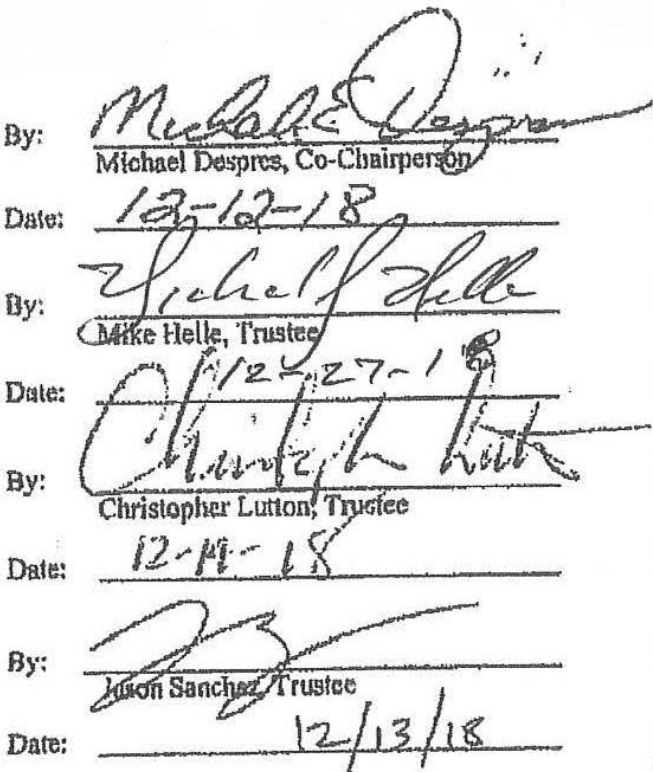 By: Michael E Despres
Michael Despres, Co-Chairperson
Date: 12-12-18
By: Michael J Helle
Mike Helle, Trustee
Date: 12-27-18
By: Christopher Lutton
Christopher Lutton, Trustee
Date: 12-19-18
By:
Jason Sanchez, Trustee
Date: 12/13/18